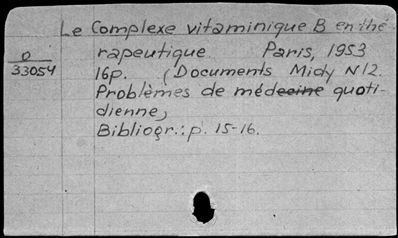 Le Complexe vitaminique B en thé
O rapeutique Paris, 1953
33054 16p. (Documents Midy N12.
Problèmes de médecine quoti-
dienne)
Bibliogr.: p. 15-16.